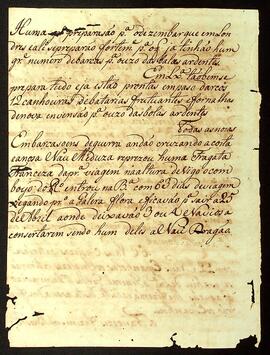 Huma preparasão p.ª o dezembarque em Lon
dres e ali se preparão fortem.te p.ª o q já tinhão hum
gr.e numero de barcas p.ª o uzo das balas ardentes
Em Lx.ª tãobem se
prepara tudo e já estão prontas em paso darcos
12 canhoneiras de baterias frutuantes e fornalhas
de nova invensão p.ª o uzo das balas ardentes
Todas as nosas
Embarcasoens de guerra andão cruzando a costa
a nosa Náu Meduza reprezou huma Fragata
Franceza da pr.ª viagem na altura de Vigo o com
boyo do R.º entrou na B.ª com 62 dias de viagem
Legando pr.º a Galera flora e ficava p.ª sair a 25
de Abril aonde deixavão 3 ou 4 Navios a
consertarem sendo hum deles a Náu Bragãa